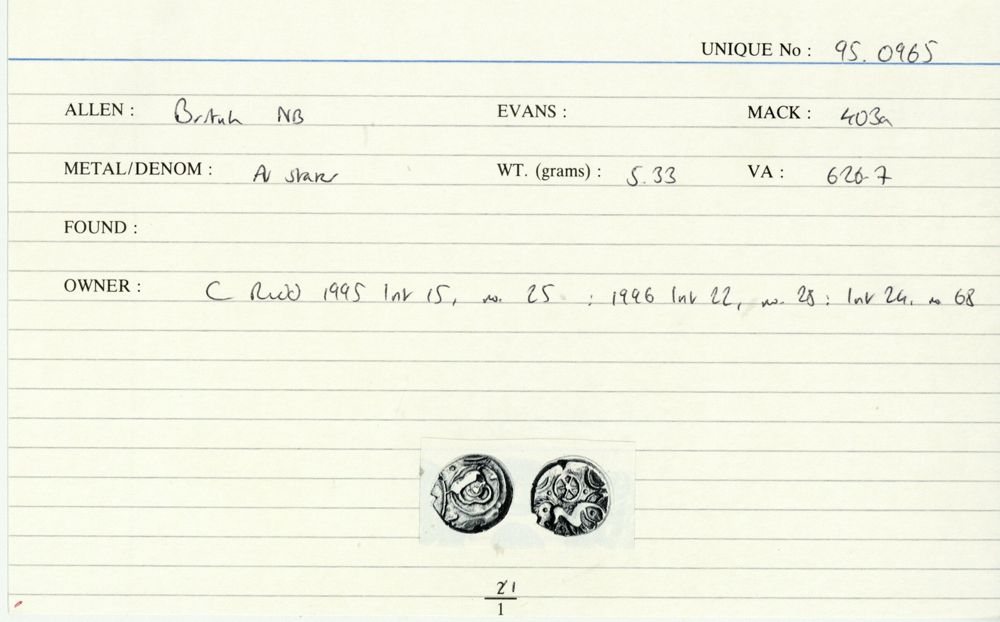 UNIQUE No : 95.0965
ALLEN : British NB EVANS : MACK : 403a
METAL/DENOM : AV stater WT. (grams) : 5.33 VA : 626-7
FOUND :
OWNER : C Rudd 1995 list 15, no. 25 : 1996 list 22, no. 28 : list 24, no 68
21
1